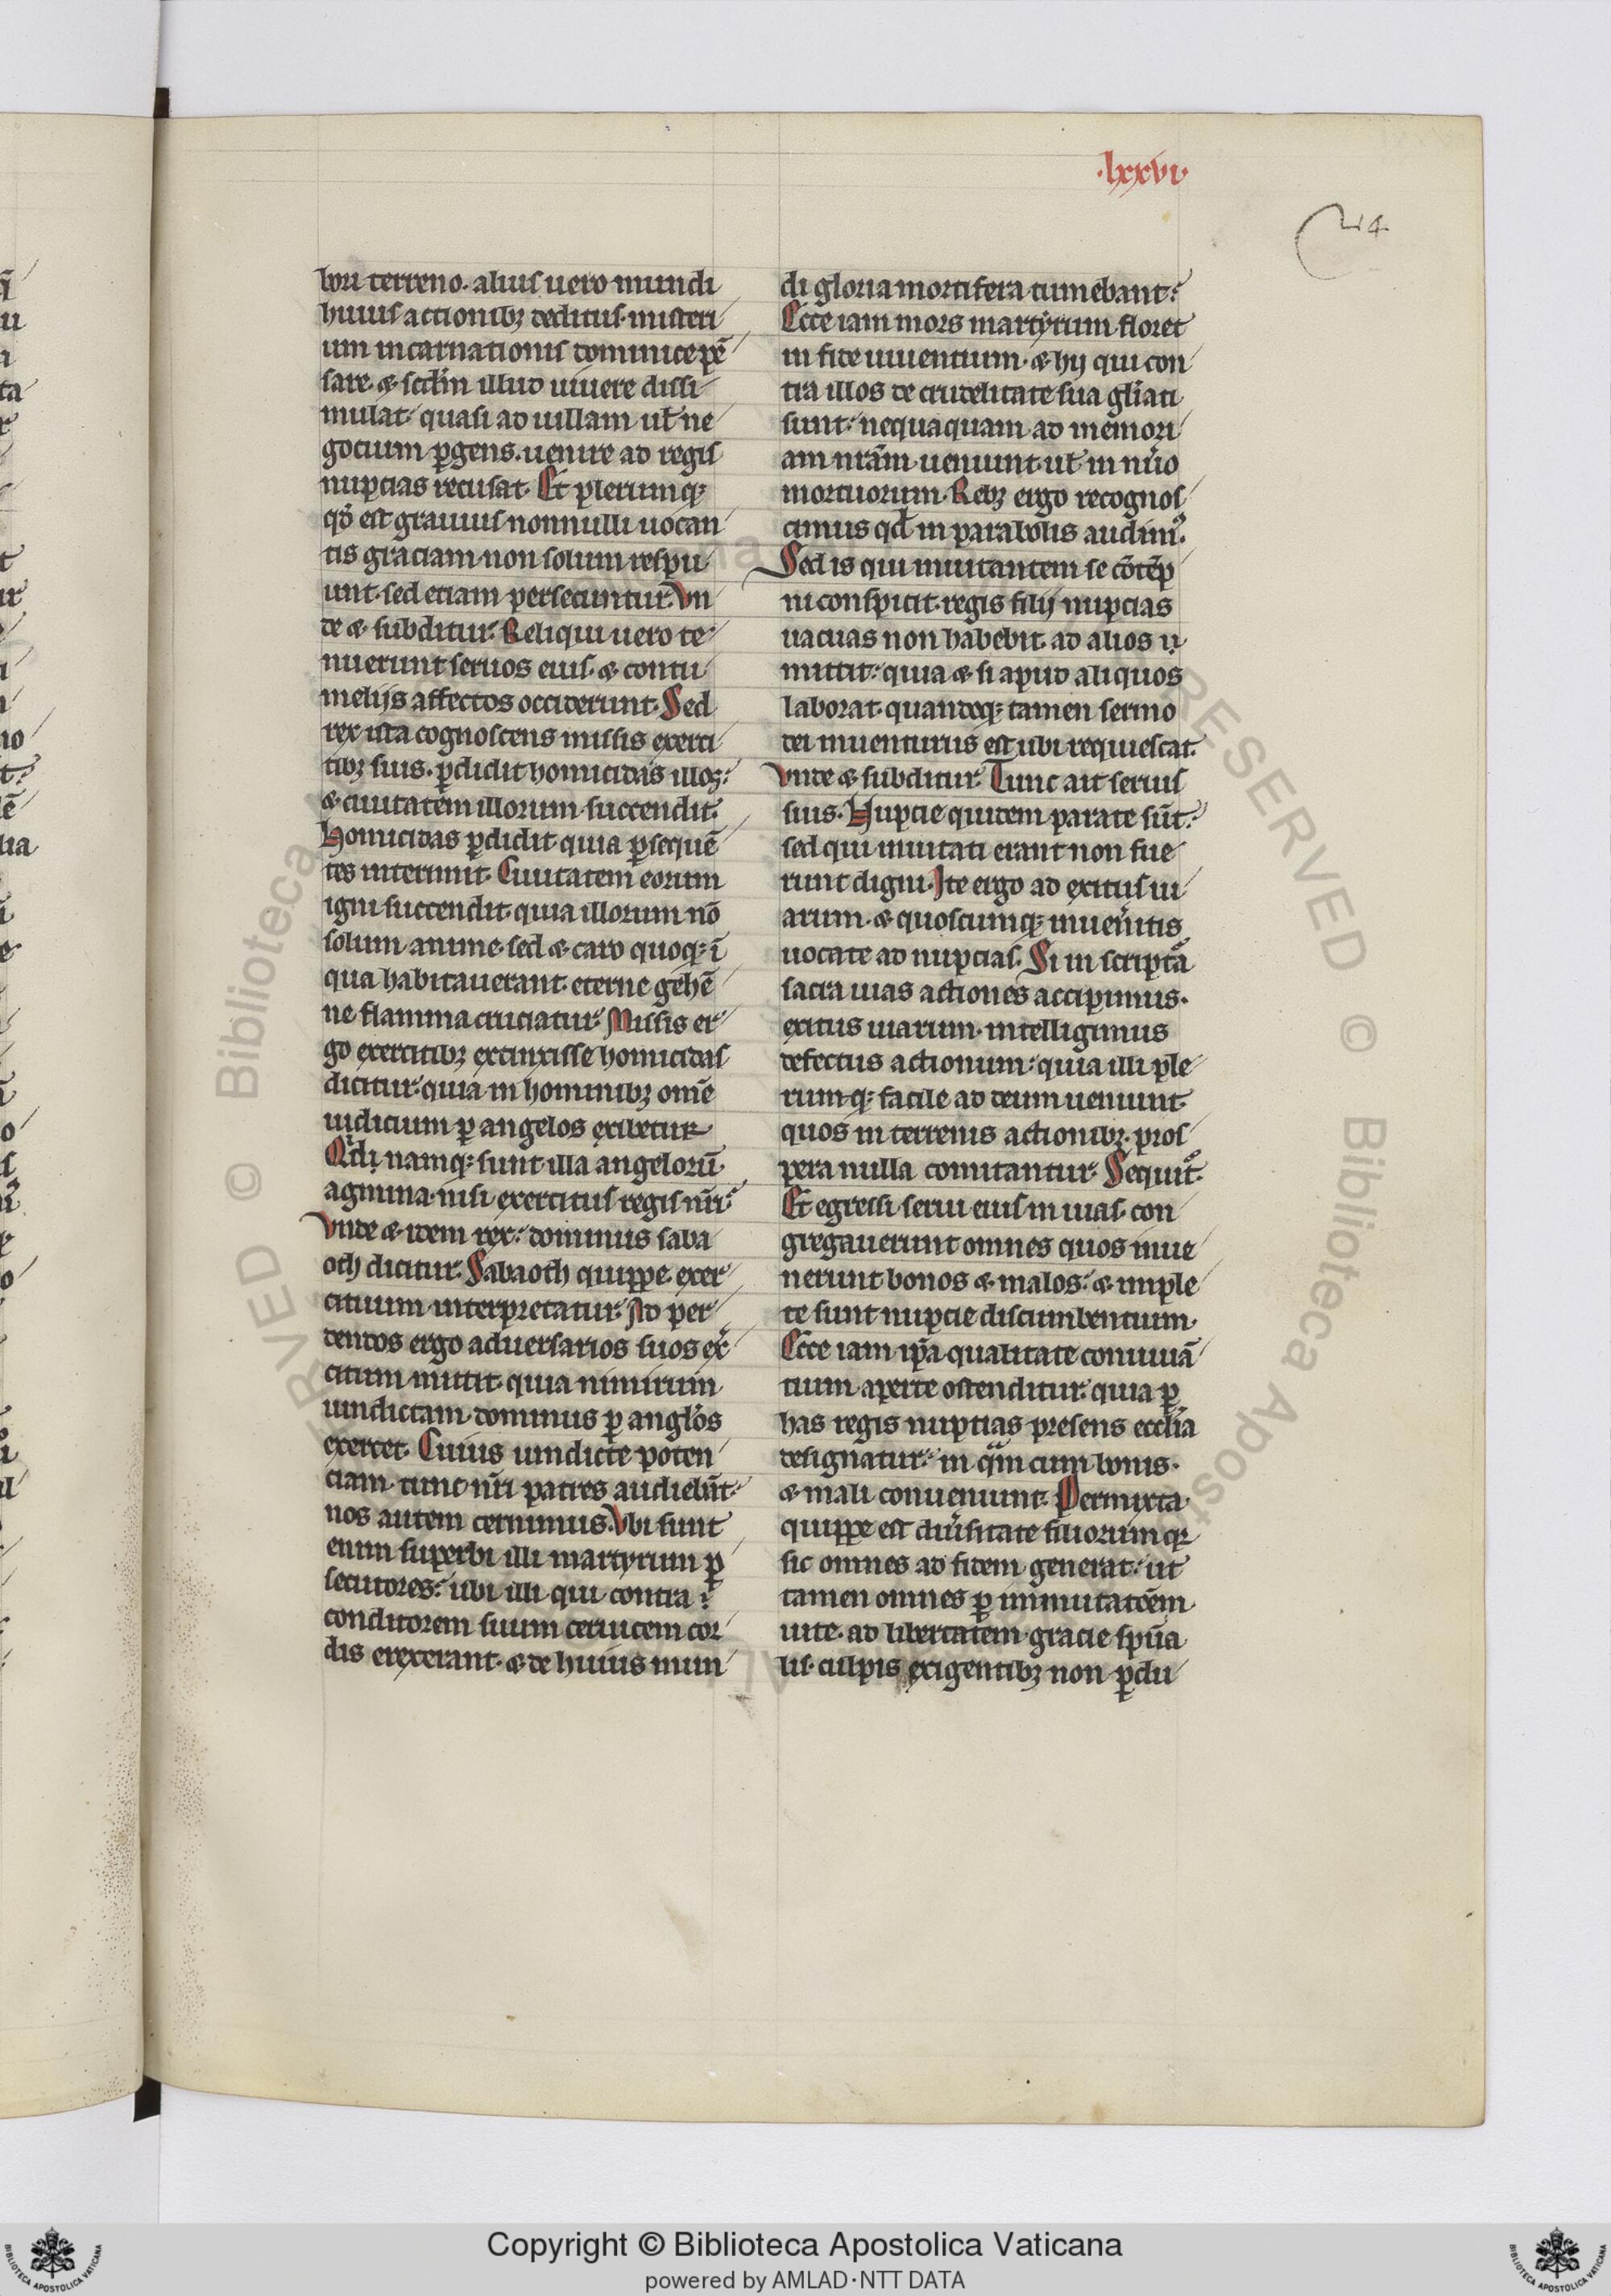 .lxxvi.
214
bori terreno. alius uero mundi
huius actionibꝫ deditus. misteri
um incarnationis dominice pē
sare. ⁊ scđm illud uiuere dissi
mulat. quasi ad uillam uł ne
gocium ꝑgens. uenire ad regis
nupcias recusat. Et plerumqꝫ
qđ est grauius nonnulli uocan
tis graciam non solum respu
unt. sed etiam persecuntur. Vn
de ⁊ subditur. Reliqui uero te
nuerunt seruos eius. ⁊ contu
melijs affectos occiderunt. Sed
rex ista cognoscens missis exerci
tibꝫ suis. ꝑdidit homicidas illoꝫ:
⁊ ciuitatem illorum succendit.
Homicidas ꝑdidit quia ꝑsequē
tes interimit. Ciuitatem eorum
igni succendit. quia illorum nō
solum anime. sed ⁊ caro quoqꝫ ī
qua habitauerant. eterne gehē
ne flamma cruciatur. Missis er
go exercitibꝫ extinxisse homicidas
dicitur. quia in hominibꝫ om̄e
iudicium ꝑ angelos exibetur
Qđi namqꝫ sunt illa angelorū
agmina. nisi exercitus regis nr̄i.
Vnde ⁊ idem rex: dominus saba
oth dicitur. Sabaoth quippe. exer
cituum interpretatur. Ad per
dendos ergo aduersarios suos exer̄
citum mittit. quia nimirum
uindictam dominus ꝑ angłos
exercet. Cuius uindicte poten
ciam. tunc nr̄i patres audiebāt.
nos autem cernimus. Vbi sunt
enim superbi illi martyrum ꝑ
secutores: ubi illi qui contra
conditorem suum ceruicem cor
dis erexerant. ⁊ de huius mun
di gloria mortifera tumebant:
Ecce iam mors martyrum floret
in fide uiuentium. ⁊ hij qui con
tra illos de crudelitate sua głiati
sunt: nequaquam ad memori
am nr̄am ueniunt. uł in nūo
mortuorum. Rebꝫ ergo recognos
cimus qđ in parabolis audim᷒.
Sed is qui inuitantem se cōtēp
ni conspicit. regis filij nupcias
uacuas non habebit. ad alios
mittit: quia ⁊ si apud aliquos
laborat. quandoqꝫ tamen sermo
dei inuenturus est ubi requiescat.
Vnde ⁊ subditur. Tunc ait seruis
suis. Nupcie quidem parate sūt.
sed qui inuitati erant non fue
runt digni. Ite ergo ad exitus ui
arum. ⁊ quoscumqꝫ inuen̄itis
uocate ad nupcias. Si in scriptā
sacra uias actiones accipimus.
exitus uiarum. intelligimus
defectus actionum: quia illi ple
rumqꝫ facile ad deum ueniunt
quos in terrenis actionibꝫ. pros
pera nulla comitantur. Sequit᷒.
Et egressi serui eius in uias. con
gregauerunt omnes quos inue
nerunt bonos ⁊ malos: ⁊ imple
te sunt nupcie discumbentium.
Ecce iam ip̄a qualitate conuiuā
tium. aperte ostenditur. quia ꝑ
has regis nuptias presens eccłia
designatur: in qᵃm cum bonis.
⁊ mali conueniunt. Permixta
quippe est diūsitate filiorum qꝛ
sic omnes ad fidem generat: ut
tamen omnes ꝑ immutatōem
uite. ad libertatem gracie spūa
lis. culpis exigentibꝫ non ꝑdu
Copyright © Biblioteca Apostolica Vaticana
powered by AMLAD·NTT DATA